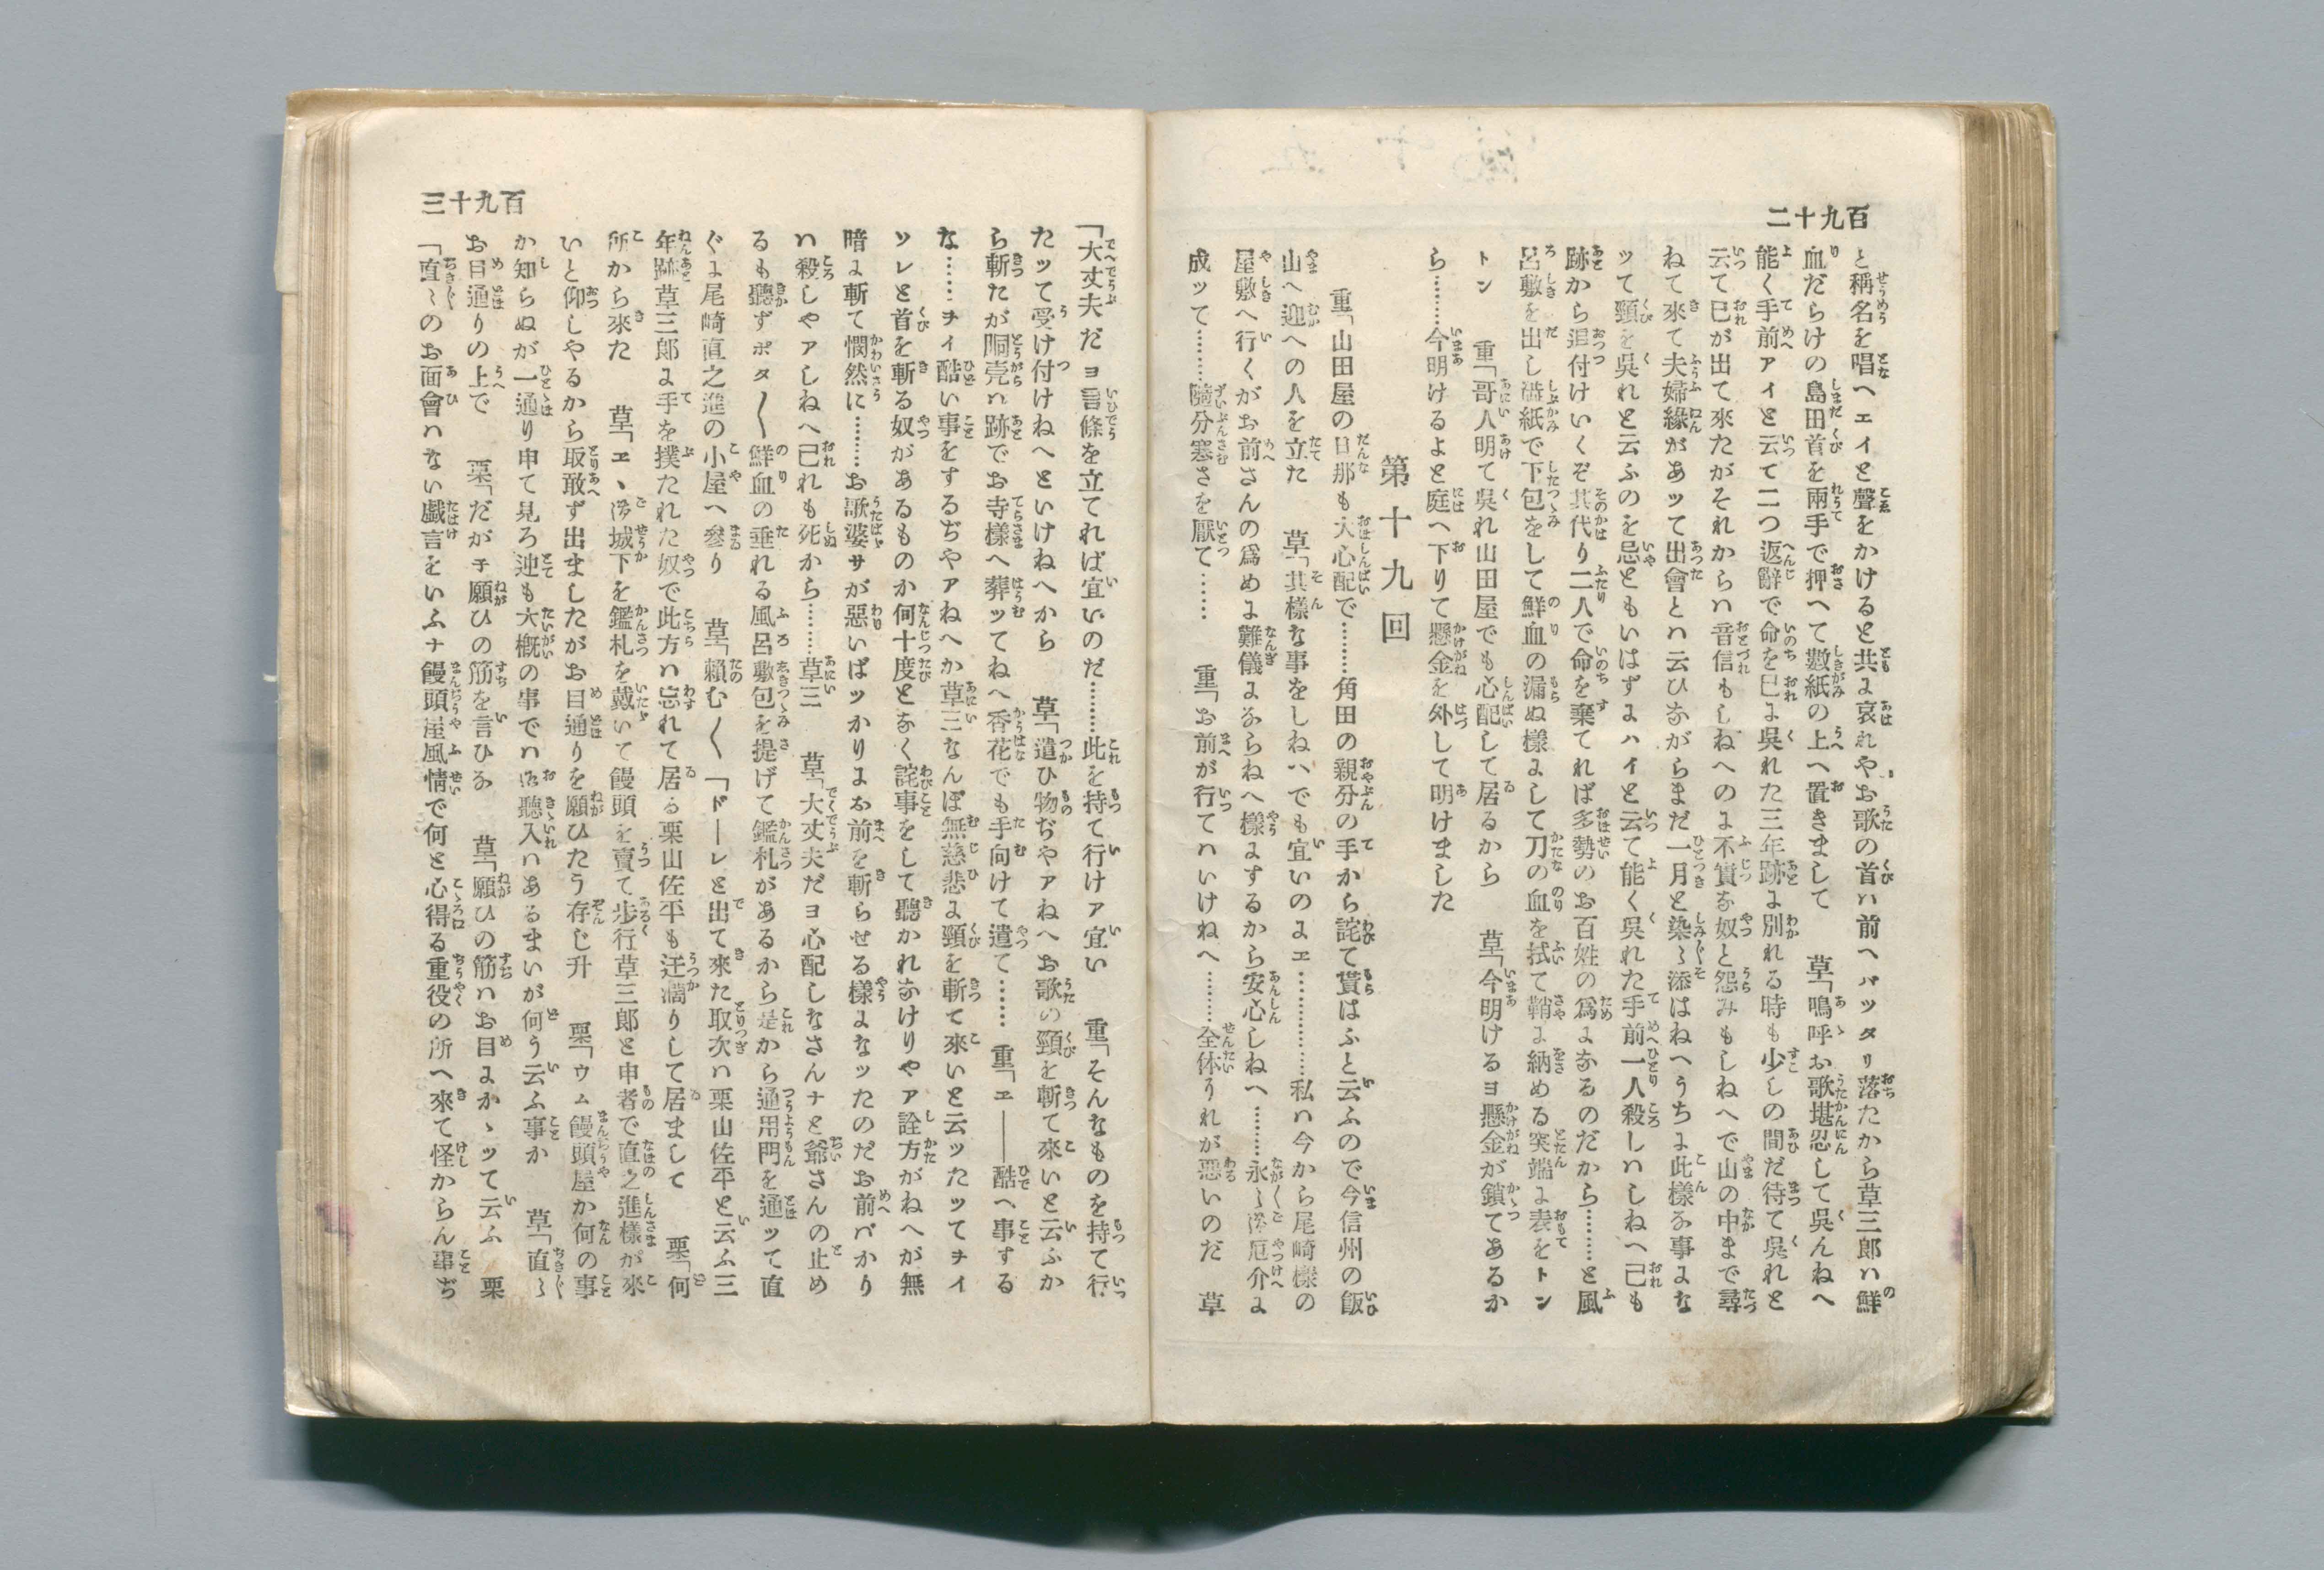 百九十二
と稱名を唱へエイと聲をかけると共に哀れやお歌の首ハ前へバッタリ落たから草三郎ハ鮮
血だらけの島田首を兩手で押へて敷紙の上へ置きまして　草「嗚呼お歌堪忍して呉んねへ
能く手前アイと云て二つ返辭で命を己に呉れた三年跡に別れる時も少しの間だ待て呉れと
云て己が出て來たがそれからハ音信もしねへのに不實な奴と怨みもしねへで山の中まで尋
ねて來て夫婦緣があッて出會とハ云ひながらまだ一月と染々添はねへうちに此樣な事にな
ッて頸を呉れと云ふのを忌ともいはずにハイと云て能く呉れた手前一人殺しハしねへ己も
跡から追付けいくぞ其代り二人で命を棄てれば多勢のお百姓の爲になるのだから………と風
呂敷を出し澁紙で下包をして鮮血の漏ぬ樣にして刀の血を拭て鞘に納める突端に表をトン
トン　重「哥人明て呉れ山田屋でも心配して居るから　草「今明けるヨ懸金が鎖てあるか
ら………今明けるよと庭へ下りて懸金を外して明けました
第十九回
重「山田屋の旦那も大心配で………角田の親分の手から詫て貰はふと云ふので今信州の飯
山へ迎への人を立た　草「其樣な事をしねハでも宜いのにエ…………私ハ今から尾崎樣の
屋敷へ行くがお前さんの爲めに難儀にならねへ樣にするから安心しねへ………永々御厄介に
成ッて………隨分寒さを厭て……　重「お前が行てハいけねへ………全体うれが悪いのだ　草
百九十三
「大丈夫だヨ言條を立てれば宜いのだ………此を持て行けア宜い　重「そんなものを持て行
たッて受け付けねへといけねへから　草「遣ひ物ぢやアねへお歌の頸を斬て來いと云ふか
ら斬たが胴壳ハ跡でお寺樣へ葬ッてねへ香花でも手向けて遣て……　重「エ――酷へ事する
な……ヲイ酷い事をするぢやアねへか草三なんぼ無慈悲に頸を斬て來いと云ッたッてヲイ
ソレと首を斬る奴があるものか何十度となく詫事をして聽かれなけりやア詮方がねへが無
暗に斬て憫然に………お歌婆サが惡いばッかりにお前を斬らせる樣になッたのだお前バかり
ハ殺しやアしねへ己れも死から………草三　草「大丈夫だヨ心配しなさんナと爺さんの止め
るも聽ずポタ〳〵鮮血の垂れる風呂敷包を提げて鑑札があるから是から通用門を通ッて直
ぐに尾崎直之進の小屋へ參り　草「賴む〳〵「ドーレと出て來た取次ハ栗山佐平と云ふ三
年跡草三郎に手を撲たれた奴で此方ハ忘れて居る栗山佐平も迂濶りして居まして　栗「何
所から來た　草「エヽ御城下を鑑札を戴いて饅頭を賣て步行草三郎と申者で直之進樣が來
いと仰しやるから取敢ず出ましたがお目通りを願ひたう存じ升　栗「ウム饅頭屋か何の事
か知らぬが一通り申て見ろ迚も大槪の事でハ御聽入ハあるまいが何う云ふ事か　草「直々
お目通りの上で　栗「だがヲ願ひの筋を言ひな　草「願ひの筋ハお目にかゝッて云ふ　栗
「直々のお面會ハない戱言をいふナ饅頭屋風情で何と心得る重役の所へ來て怪からん事ぢ